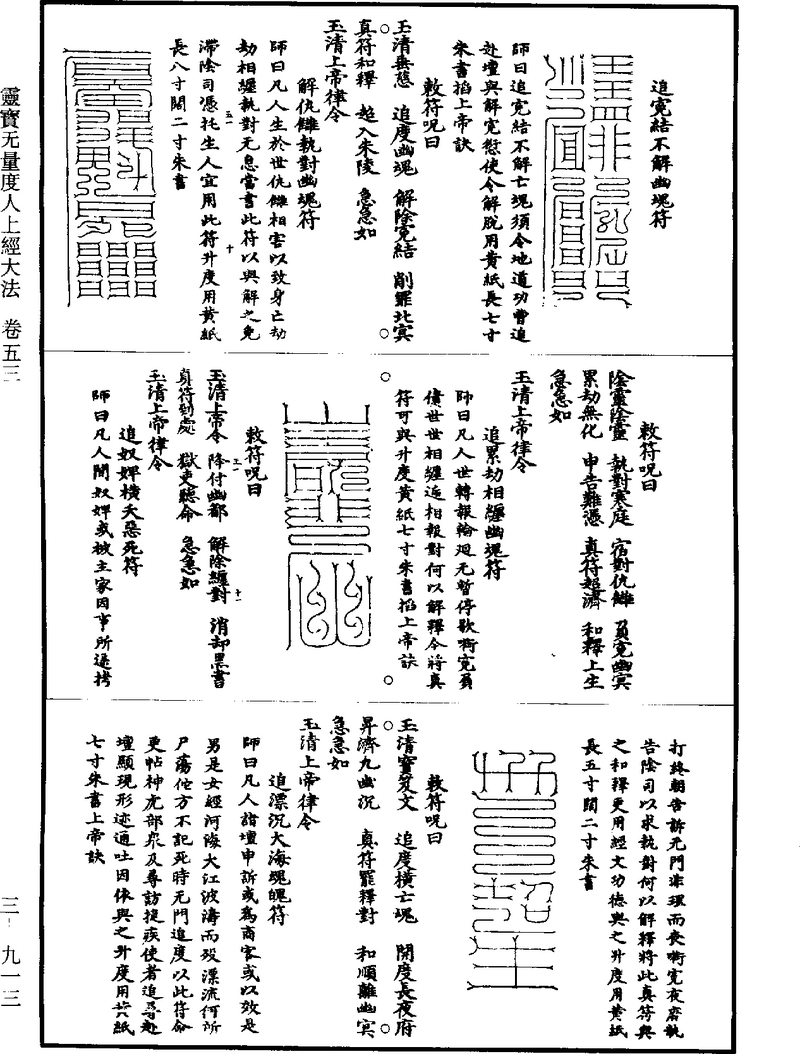 追寃結不解幽魂符
師曰追寃結不解亡魂須令地道功曹追
赴壇與解寃愆使令解脫用黃紙長七寸
朱書掐上帝訣
敕符呪曰
玉清垂慈 追度幽魂 解除寃結 削罪北㝠
真符和釋 超入朱陵 急急如
玉清上帝律令
解仇讎執對幽魂符
師曰凡人生於世仇讎相害以致身亡劫
劫相纏執對无息當書此符以與解之免
滯陰司憑托生人宜用此符升度用黃紙
長八寸闊二寸朱書
敕符呪曰
陰靈陰靈 執對寒庭 宿對仇讎 負寃幽㝠
累劫無化 申告難憑 真符超濟 和釋上生
急急如
玉清上帝律令
追累劫相纏幽魂符
師曰凡人世轉報輪迴无暫停歇啣寃負
債世世相纏遞相報對何以解釋令將真
符可與升度黃紙七寸朱書掐上帝訣
敕符呪曰
玉清上帝令 降付幽都 解除纏對 消却黑書
真符到處 獄吏聽命 急急如
玉清上帝律令
追奴婢橫夭惡死符
師曰凡人間奴婢或被主家因事所逼拷
打終朝告訴无門非理而喪啣寃夜府執
告陰司以求執對何以解釋將此真符與
之和釋更用經文功德與之升度用黃紙
長五寸闊二寸朱書
敕符呪曰
玉清寶篆文 追度橫亡魂 開度長夜府
昇濟九幽沉 真符罷釋對 和順離幽㝠
急急如
玉清上帝律令
追漂沉大海魂魄符
師曰凡人詣壇申訴或為商客或以效是
男是女經河海大江波濤而歿漂流何所
尸蕩佗方不記死時无門追度以此符命
更帖神虎部衆及尋訪捉疾使者追尋赴
壇顯現形迹通吐因依與之升度用黃紙
七寸朱書上帝訣
靈寶无量度人上經大法 卷五三
三-九一三